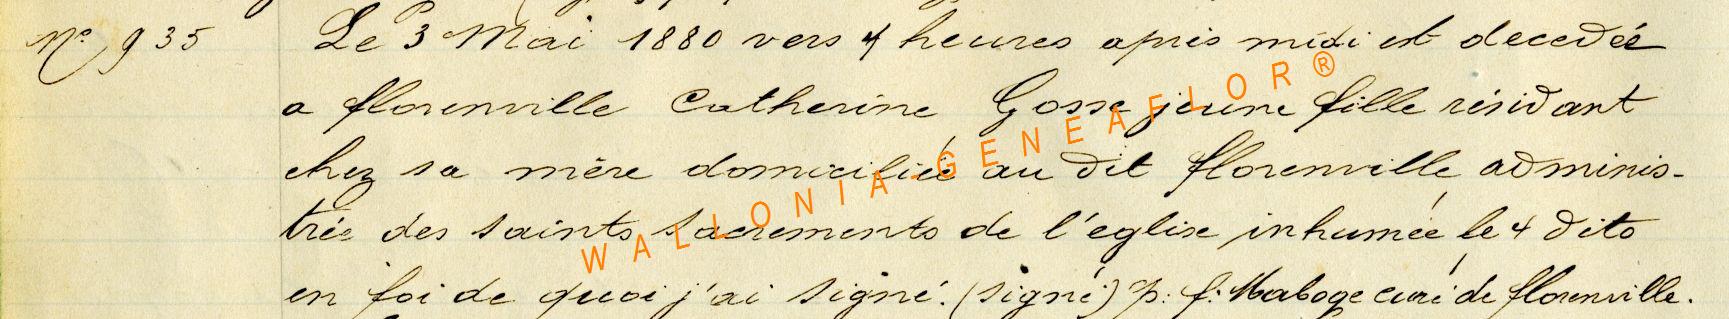 No 935 Le 3 Mai 1880 vers 4 heures après midi est decedée
a florenville Catherine Gosse jeune fille résidant
chez sa mère domiciliée au dit florenville adminis-
trée des saints sacrements de l'église inhumée le 4 dito
en foi de quoi j'ai signé. (signé) p. f. Maboge curé de florenville.
WALLONIA-GENEAFLOR®